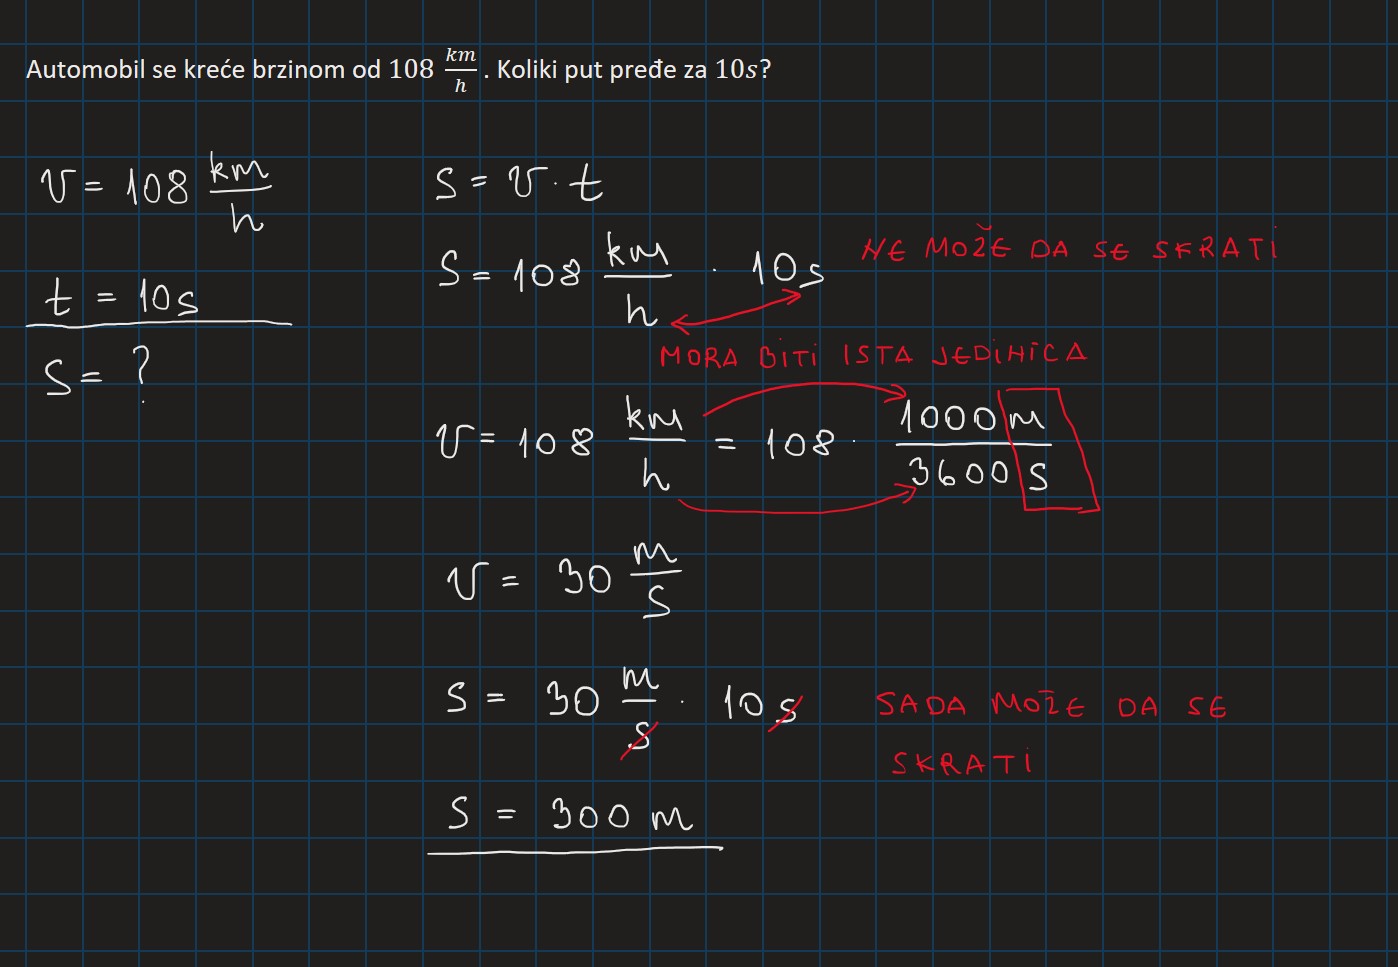 Automobil se kreće brzinom od 108 km/h . Koliki put pređe za 10s?
v = 108 km/h
t = 10s
s = ?
s = v · t
s = 108 km/h · 10s
NE MOŽE DA SE SKRATI
MORA BITI ISTA JEDINICA
v = 108 km/h = 108 · 1000m/3600s
v = 30 m/s
s = 30 m/s · 10s
SADA MOŽE DA SE
SKRATI
s = 300 m